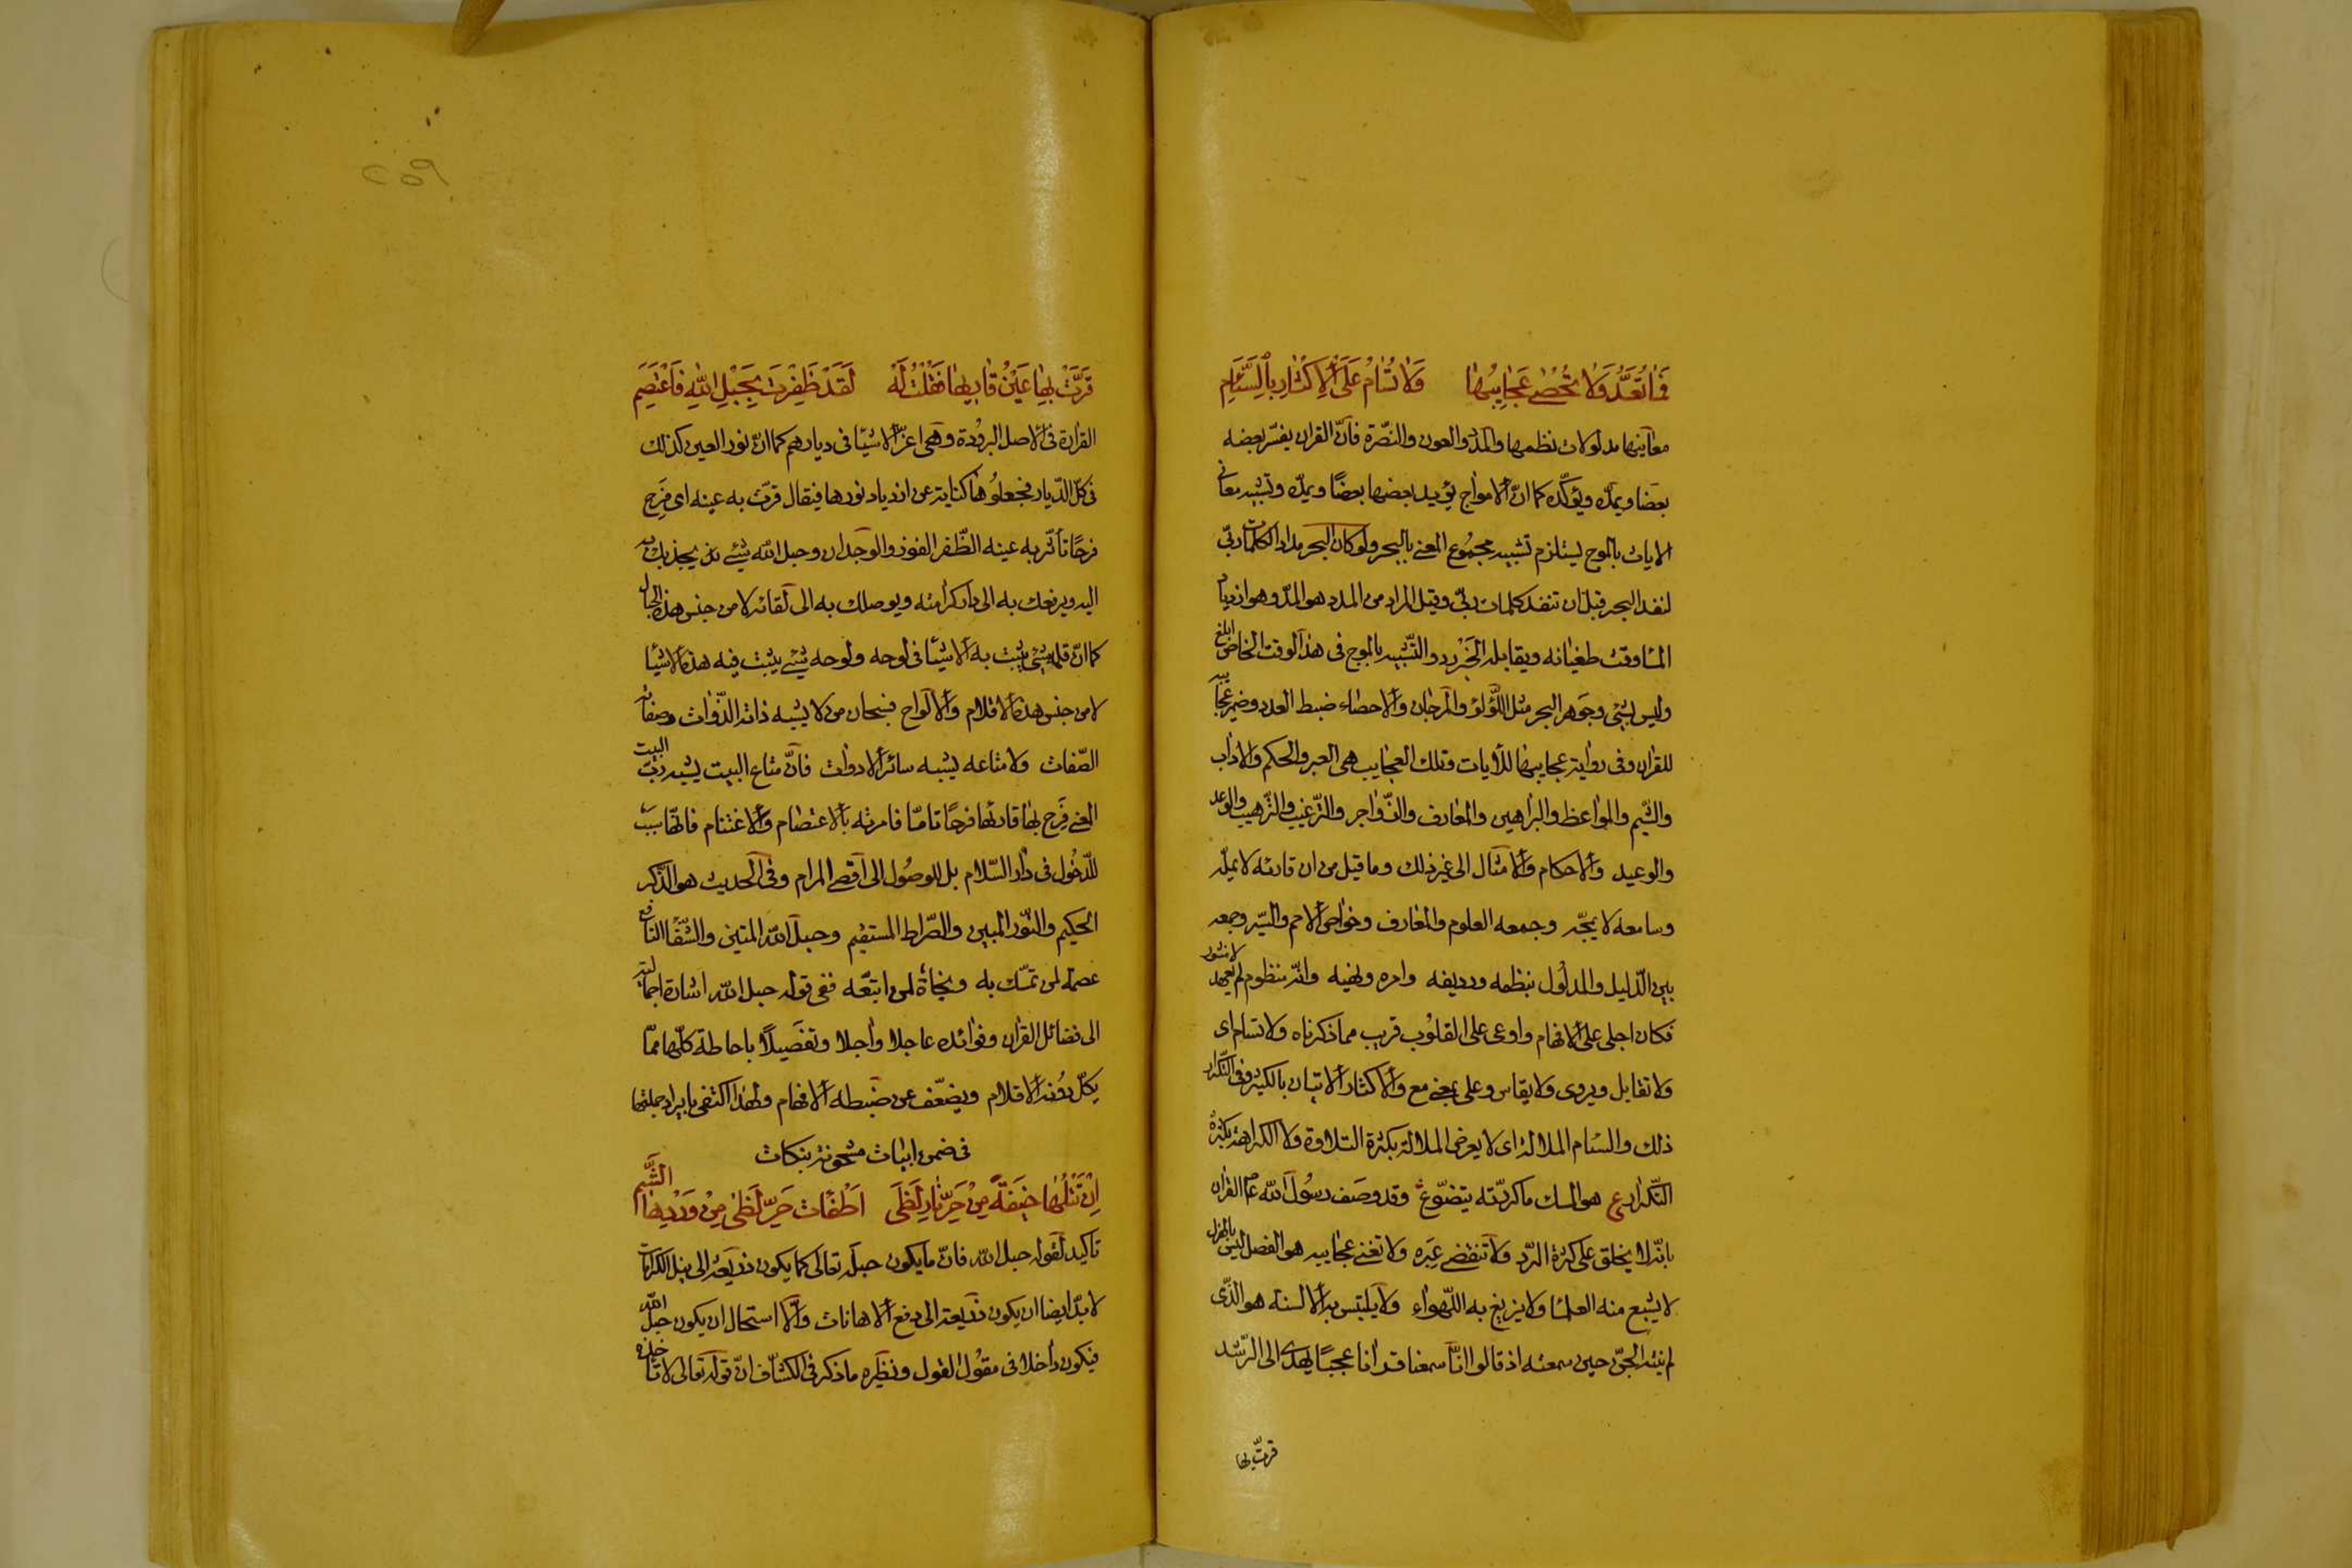 فَمَا تُعَدُّ وَلَا تُحْصٰى عَجَايِبُهَا وَلَا تُسَامُ عَلَى الْاِكْثَارِ بِالسَّئَامِ
معاينها مدلولات نظمها والمدد والعون والنصّرة فانّ القران يفسّر بعضه
بعضا ويمدّه ويؤكّده كما انّ الامواج يؤيد بعضها بعضًا ويمدّه وتشبيه معانى
الايات بالموج ليستلزم تشبيه مجموع المعنى بالبحر ولو كان البحر مدادا لكلمات ربّى
لنفد البحر قبل ان تنفد كلمات ربّى وقيل المراد من المدد هو المدّ وهو ازدياد
الماء وقت طغيانه ويقابله الجَزْر والتّشبيه بالموج فى هذا الوقت الخاص ابلغ
وليس بشئ وجوهر البحر مثل اللّؤلؤ والمرجان والاحصاء ضبط العدد وضمير عجايبه
للقران وفى رواية عجايبها للأيات وتلك العجايب هى العبر والحكم والاداب
والشيم والمواعظ والبراهين والمعارف والزّواجر والترّغيب والترّهيب والوعد
والوعيد والاحكام والامثال الى غير ذلك وما قيل من ان قارئه لا يملّه
وسامعه لا يمجّه وجمعه العلوم والمعارف وخواص الامم والسّير وجمعه
بين الدّليل والمدلول بنظمه ورديفه وامره ونهيه وانّه منظوم لم يعهد لا منثور
فكان اجلى على الافهام واوعى على القلوب قريب مما ذكرناه ولا تسام اى
ولا تقابل ويروى ولا يقاس وعلى بمعنى مع والاكثار الاتيان بالكثير وفى التّكرار
ذلك والسّام الملالة اى لا يعرض الملالة بكثرة التلاوة ولا الكراهة بكثرة
التّكرار ع هو المسك ما كررّته يتضوّع وقد وصف رسُول الله عم القران
بانّه لا يخلق على كثرة الردّ ولا تنقضى عبره ولا تفنى عجايبه هو الفصل ليس بالهزل
لا يشبع منه العلماء ولا يزيغ به الاهواء ولا يلتبس به الالسنة هو الّذى
لم ينته الجنّ حين سمعته اذ قالوا انّا سمعنا قرانا عجبًا يهدى الى الرّشد
قرّت بها
٢٥٩
قَرَّتْ بِهَا عَيْنُ قَارِيهَا فَقُلْتُ لَهُ لَقَدْ ظَفِرْتَ بِحَبْلِ اللهِ فَاعْتَصِمِ
القرارة فى الاصل البرودة وهى اعزّ الاشياء فى ديارهم كما انّ نور العين كذلك
فى كلّ الدّيار فجعلوُها كناية عن ازدياد نورها فيقال قرّت به عينه اى فَرِح
فرحًا تأثّر به عينه الظّفر الفوز والوجدان وحبل الله شئ يجذبك به
اليه ويرفعك به الى دار كرامته ويوصلك به الى لقائه لا من جنس هذه الحبال
كما انّ قلمه شئ يثبت به الاشياء فى لوحه ولوحه شئ يثبت فيه هذه الاشياء
لا من جنس هذه الاقلام والالواح فسبحان من لا يشبه ذاته الذّوات وصفاته
الصّفات ولا متاعه يشبه سائر الادوات فانّ متاع البيت يشبه ربّ البيت
المعنى فَرِح بها قارئها فرحًا تامّا فامرته بالاعتصام والاغتنام فانّها سبب
للدّخول فى دار السّلام بل للوصُول الى اقصى المرام وفى الحديث هو الذّكر
الحكيم والنّور المبين والصّراط المستقيم وحبل الله المتين والشّفاء النافع
عصمة لمن تمسّك به ونجاة لمن اتبّعه ففى قوله حبل الله اشارة اجمالية
الى فضائل القران وفوائده عاجلا وآجلا وتفصَيلاً باحاطة كلّها ممّا
يكلّ دونه الاقلام ويضعّف عن ضبطه الافهام ولهذا اكتفى بايراد جملتها
فى ضمن ابيات مشحونة بنكات
اِنْ تَتْلُهَا خِيفَةً مِنْ حَرِّ نَارِ لَظَى اَطْفَأْتَ حَرَّ لَظٰى مِنْ وِرْدِهَا الشَّبِمِ
تاكيد لقوله حبل الله فانّ ما يكون حبلَه تعالى كما يكون ذريعة الى نيل الكرامات
لا بدّ ايضا ان يكون ذريعة الى دفع الاهانات والّا استحال ان يكون حبل الله
فيكون داخلا فى مقول القول ونظيره ما ذكر فى الكشّاف انّ قوله تعالى لا تاخذه